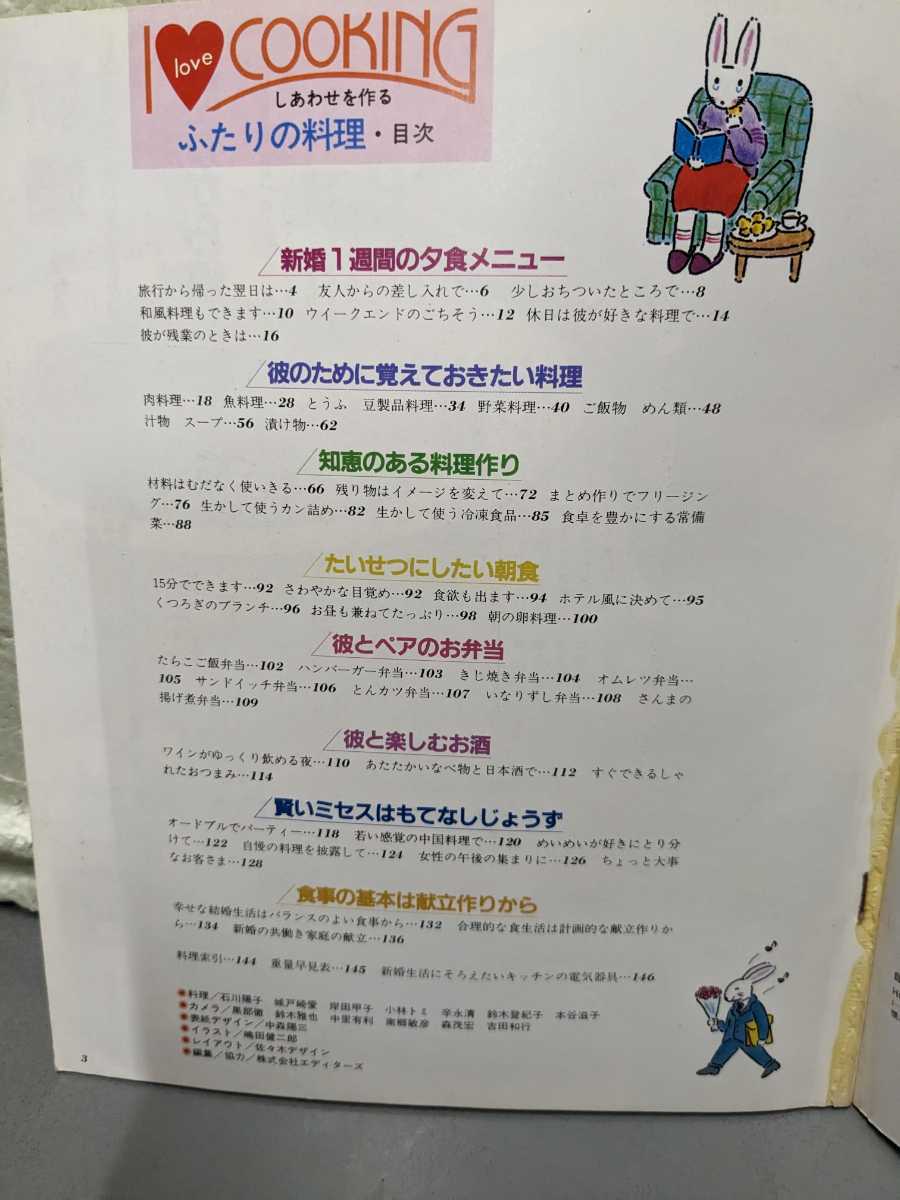 I love COOKING
しあわせを作る
ふたりの料理・目次
新婚1週間の夕食メニュー
旅行から帰った翌日は…4 友人からの差し入れで…6 少しおちついたところで…8
和風料理もできます…10 ウイークエンドのごちそう…12 休日は彼が好きな料理で…14
彼が残業のときは…16
彼のために覚えておきたい料理
肉料理…18 魚料理…28 とうふ 豆製品料理…34 野菜料理…40 ご飯物 めん類…48
汁物 スープ…56 漬け物…62
知恵のある料理作り
材料はむだなく使いきる…66 残り物はイメージを変えて…72 まとめ作りでフリージン
グ…76 生かして使うカン詰め…82 生かして使う冷凍食品…85 食卓を豊かにする常備
菜…88
たいせつにしたい朝食
15分でできます…92 さわやかな目覚め…92 食欲も出ます…94 ホテル風に決めて…95
くつろぎのブランチ…96 お昼も兼ねてたっぷり…98 朝の卵料理…100
彼とペアのお弁当
たらこご飯弁当…102 ハンバーガー弁当…103 きじ焼き弁当…104 オムレツ弁当…
105 サンドイッチ弁当…106 とんカツ弁当…107 いなりずし弁当…108 さんまの
揚げ煮弁当…109
彼と楽しむお酒
ワインがゆっくり飲める夜…110 あたたかいなべ物と日本酒で…112 すぐできるしゃ
れたおつまみ…114
賢いミセスはもてなしじょうず
オードブルでパーティー…118 若い感覚の中国料理で…120 めいめいが好きにとり分
けて…122 自慢の料理を披露して…124 女性の午後の集まりに…126 ちょっと大事
なお客さま…128
食事の基本は献立作りから
幸せな結婚生活はバランスのよい食事から…132 合理的な食生活は計画的な献立作りか
ら…134 新婚の共働き家庭の献立…136
料理索引…144 重量早見表…145 新婚生活にそろえたいキッチンの電気器具…146
●料理/石川陽子 城戸崎愛 岸田甲子 小林トミ 辛永清 鈴木登紀子 本谷滋子
●カメラ/黒部徹 鈴木雅也 中里有利 南郷敏彦 森茂宏 吉田和行
●表紙デザイン/中森陽三
●イラスト/嶋田健二郎
●レイアウト/佐々木デザイン
●編集/協力/株式会社エディターズ
3